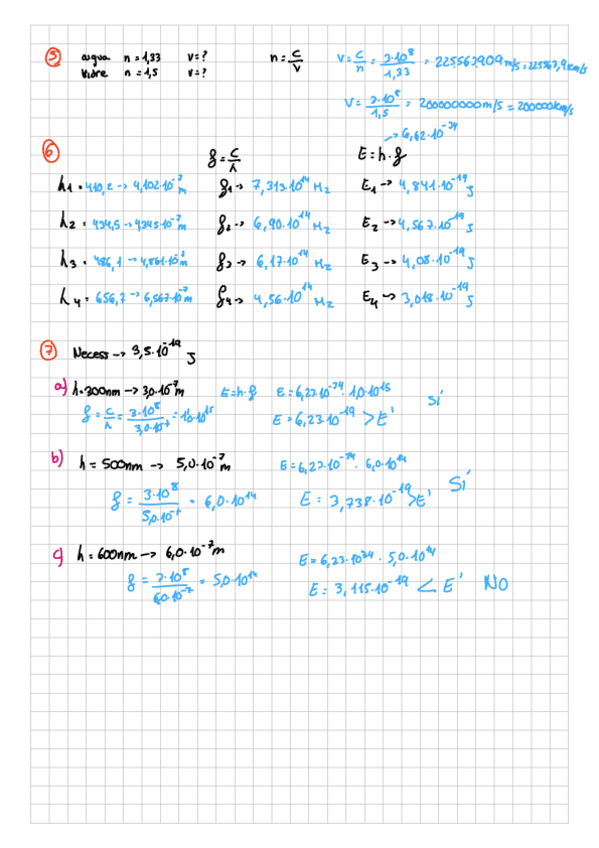 5 aigua n = 1,33 v = ? n = c/v v = c/n = 3·10⁸/1,33 = 225563909 m/s = 225563,9 km/s
Vidre n = 1,5 v = ?
v = 3·10⁸/1,5 = 200000000 m/s = 200000 km/s
-> 6,62·10⁻³⁴
6 f = c/λ E = h·f
λ1 = 410,2 -> 4,102·10⁻⁷ m f1 -> 7,313·10¹⁴ Hz E1 -> 4,841·10⁻¹⁹ J
λ2 = 434,5 -> 4,345·10⁻⁷ m f2 -> 6,90·10¹⁴ Hz E2 -> 4,567·10⁻¹⁹ J
λ3 = 486,1 -> 4,861·10⁻⁷ m f3 -> 6,17·10¹⁴ Hz E3 -> 4,08·10⁻¹⁹ J
λ4 = 656,7 -> 6,567·10⁻⁷ m f4 -> 4,56·10¹⁴ Hz E4 -> 3,018·10⁻¹⁹ J
7 Necess -> 3,5·10⁻¹⁹ J
a) λ = 300nm -> 3,0·10⁻⁷ m E = h·f E = 6,23·10⁻³⁴ · 1,0·10¹⁵ SÍ
f = c/λ = 3·10⁸/3,0·10⁻⁷ = 1,0·10¹⁵ E = 6,23·10⁻¹⁹ > E'
b) λ = 500nm -> 5,0·10⁻⁷ m E = 6,23·10⁻³⁴ · 6,0·10¹⁴ SÍ
f = 3·10⁸/5,0·10⁻⁷ = 6,0·10¹⁴ E = 3,738·10⁻¹⁹ > E'
c) λ = 600nm -> 6,0·10⁻⁷ m E = 6,23·10³⁴ · 5,0·10¹⁴
f = 3·10⁸/6,0·10⁻⁷ = 5,0·10¹⁴ E = 3,115·10⁻¹⁹ < E' NO